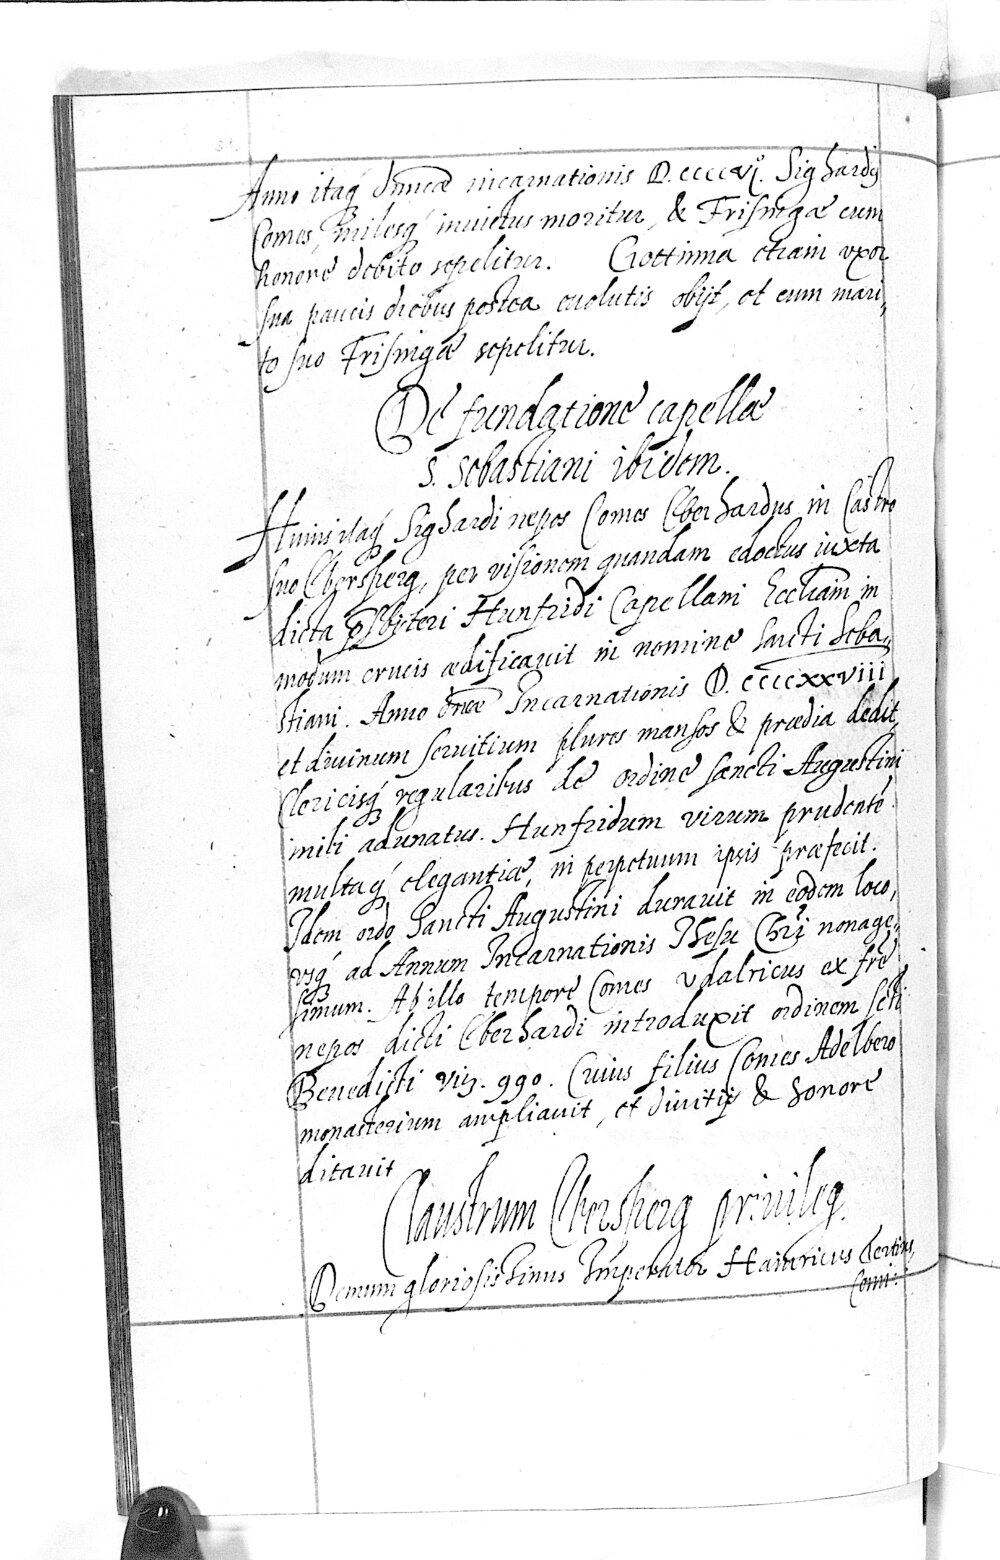 Anno itaq́ Dn̄icæ incarnationis D.ccccvj.º Sighardꝰ
Comes, milesq́ inuictus moritur, & Frisingæ cum
honore debito sepelitur. Gottinna etiam vxor
sua paucis diebus postea euolutis obijt, et cum mari,,
to suo Frisingæ sepelitur.
De fundatione capellæ
S. Sebastiani ibidem.
Huius itaq́ Sighardi nepos Comes Eberhardus in Castro
suo Ebersperg, per visionem quandam edoctus iuxta
dicta p̄sbyteri Hunfridi Capellani Eccl̄iam in
modum crucis ædificauit in nomine Sancti Seba,,
stiani. Anno dn̄cæ Incarnationis D.ccccxxviii
et diuinum seruitium plures mansos & prædia dedit,
Clericisq́ regularibus de ordine Sancti Augustini
inibi adunatus. Hunfridum virum prudentē
multaq́ elegantiæ, in perpetuum ipsis præfecit.
Idem ordo Sancti Augustini durauit in eodem loco,
vsq́ ad Annum Incarnationis Jhesu Chr̄i nonage,,
simum. Ab illo tempore Comes Vdalricus ex fr̄e
nepos dicti Eberhardi introduxit ordinem Sc̄ti
Benedicti viz. 990. Cuius filius Comes Adelbero
monasterium ampliauit, et diuitijs & honore
ditauit
Claustrum Ebersperg priuileg.
Demum gloriosissimus Imperator Hainricus Tertius,
Comi: